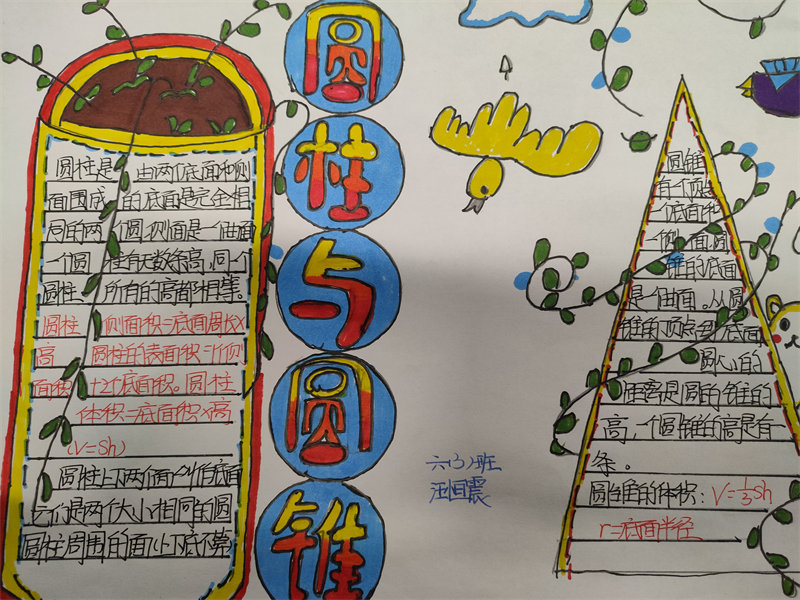 圆柱是 由两个底面和侧
面围成 的底面是完全相
同的两 圆,侧面是一曲面
一个圆 柱有无数条高,同一个
圆柱 所有的高都相等
圆柱 侧面积=底面周长×
高 圆柱的表面积=侧
面积 +2个底面积。圆柱
体积=底面积×高
(V=Sh)
圆柱上下两个面叫做底面
它们是两个大小相同的圆
圆柱周围的面
圆
柱
与
圆
锥
六(3)班
汪恒震
圆锥
有个顶
一底面和
一侧面,圆
锥的底面
是一曲面。从圆
锥的顶点到底面
圆心的
距离是圆的锥的
高,一个圆锥的高是有一
条。
圆锥的体积:V=⅓Sh
r=底面半径